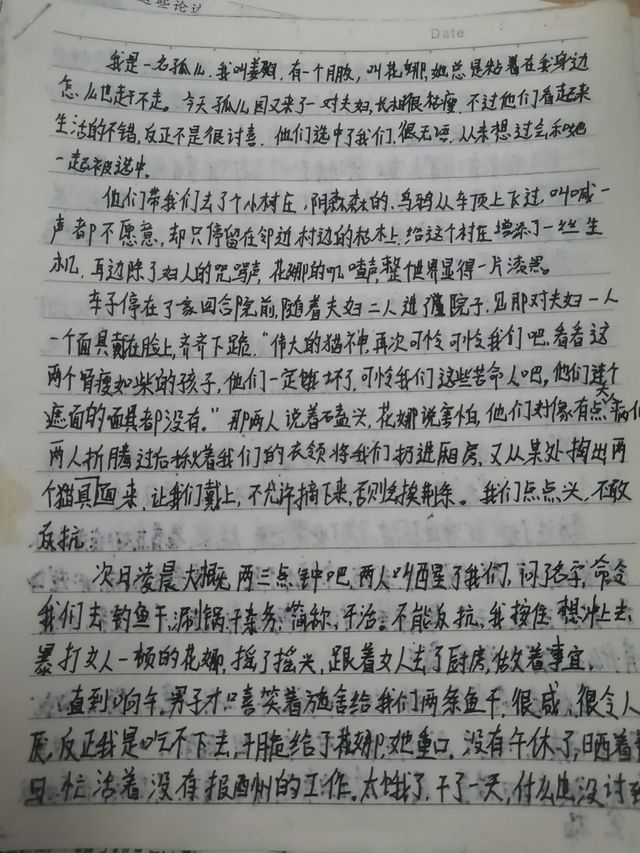 些论文
Date
我是一名孤儿,我叫姜姻,有一个朋友,叫花娜,她总是粘着在我身边
怎么也赶不走。今天孤儿园又来了一对夫妇,长相很枯瘦,不过他们看起来
生活的不错,反正不是很讨喜。他们选中了我们,很无语,从未想过会和她
一起被选中。
他们带我们去了个小村庄,阴森森的,乌鸦从车顶上飞过,叫喊一
声都不愿意,却只停留在邻边村边的枯木上,给这个村庄增添了一丝生
机,耳边除了妇人的咒骂声,花娜的叽喳声,整个世界显得一片漆黑。
车子停在了家四合院前,随着夫妇二人进了院子,见那对夫妇一人
一个面具戴在脸上,齐齐下跪,“伟大的猫神,再次可怜可怜我们吧,看看这
两个骨瘦如柴的孩子,他们一定饿坏了,可怜我们这些苦命人吧,他们连个
遮面的面具都没有。”那两人说着磕头,花娜说害怕,他们对像有点大病似
两人折腾过后揪着我们的衣领将我们扔进厢房,又从某处掏出两
个猫面具来,让我们戴上,不允许摘下来,否则会挨荆条。我们点点头,不敢
反抗。
次日凌晨大概两三点钟吧,两人叫醒了我们,问了名字,命令
我们去钓鱼干,涮锅,干杂务,简称,干活。不能反抗,我按住想冲上去,
暴打女人一顿的花娜,摇了摇头,跟着女人去了厨房,做着事宜。
直到晌午,男子才嘻笑着施舍给我们两条鱼干,很咸,很令人
反正我是吃不下去,干脆给了花娜,她重口。没有午休了,晒着
日,忙活着没有报酬的工作。太饿了,干了一天,什么也没讨到